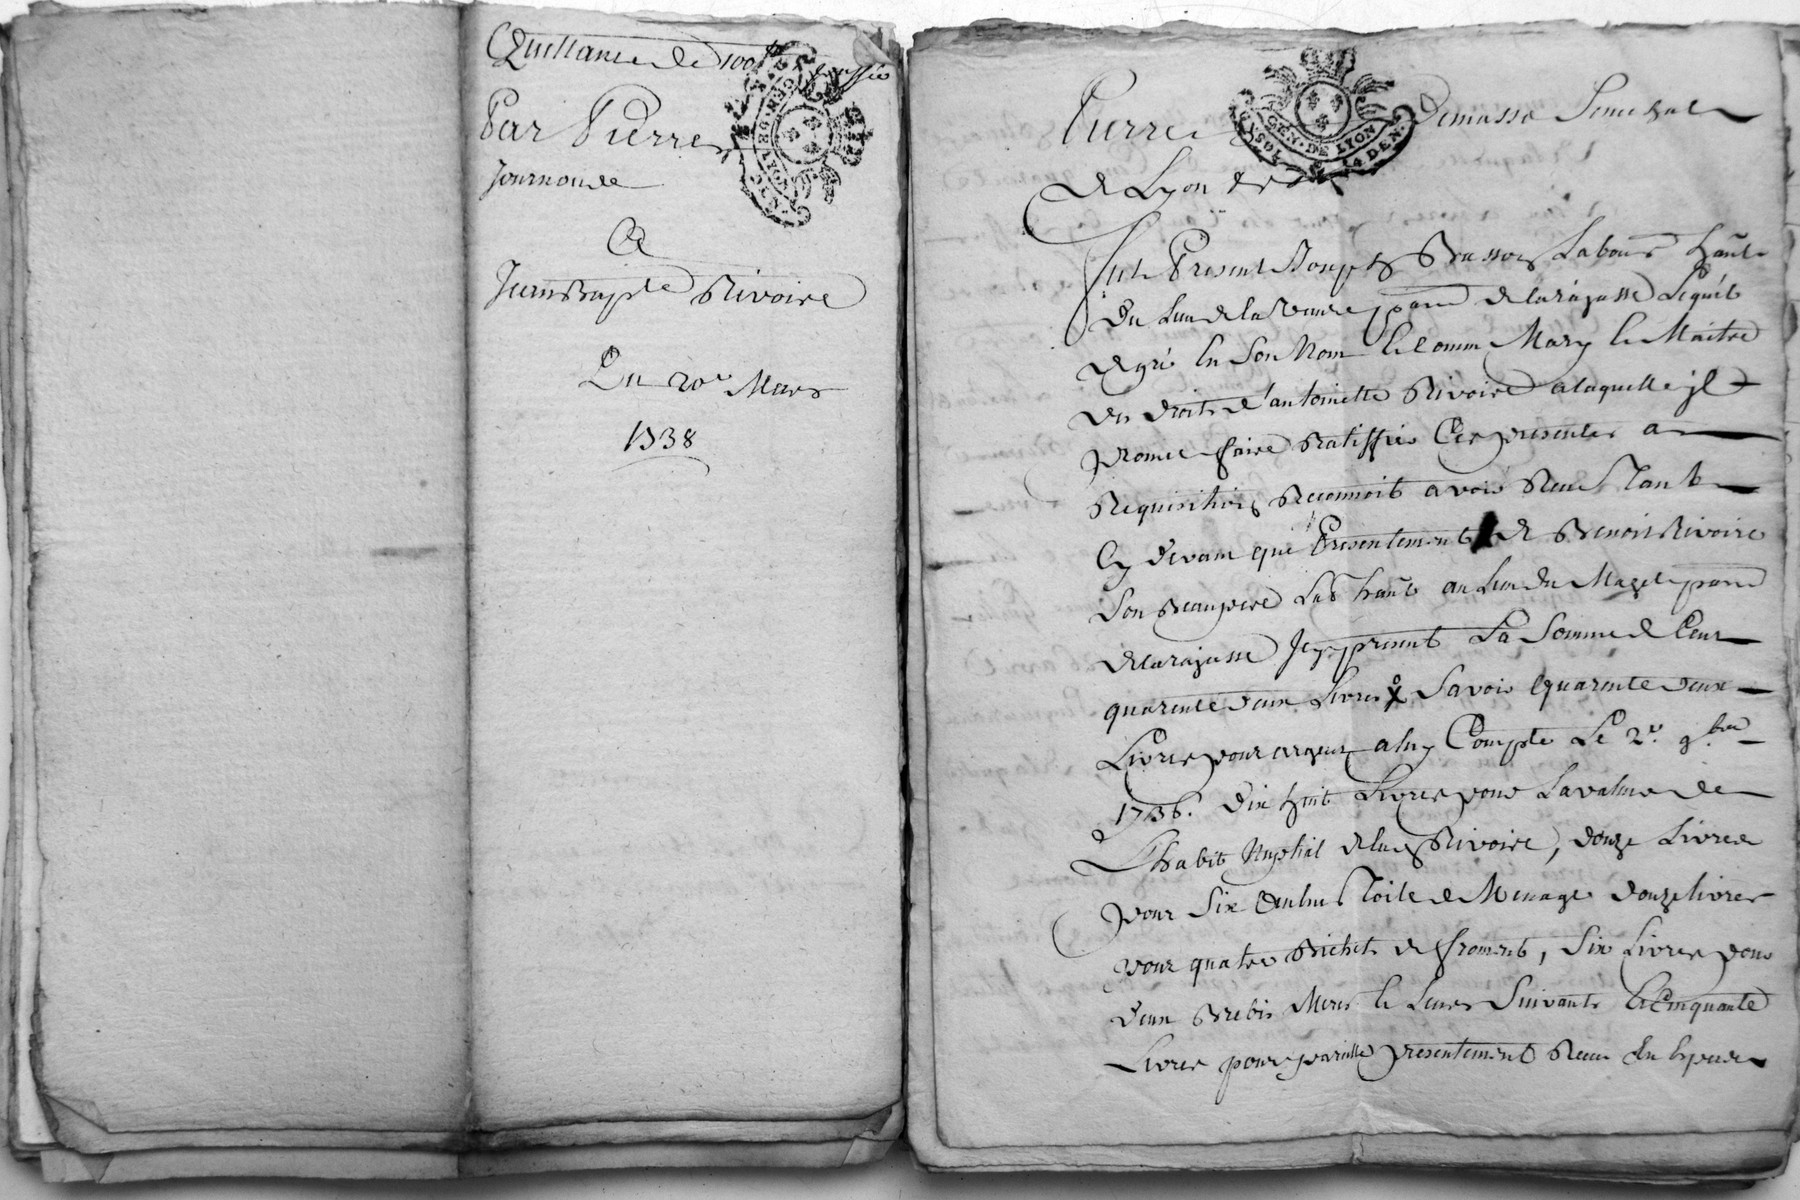 Quittance de 100ᵗᵗ
Par Pierre
Journoude
A
Jean Bapte Rivoire
Du 20e Mars
1738
GEN. DE LYON
Pierre Demasso Senechal
GÉN. DE LYON
1 SOL 14 DEN.
de Lyon
fut Present Labour hant
Du lieu de la parr de larajasse Lequel
degré En Son Nom Et Comme Mary Et Maitre
des droits d'antoinette Rivoire a laquelle jl
promet faire Ratiffier Ces presentes a
Requisition Reconnoit avoir Receu Tant
Cy devant que Presentement de Benoit Rivoire
Son Beaupere Lab hant au Lieu du Mazel parr
de larajasse Jcy present La Somme de Cent
quarente deux Livres Savoir Quarente deux
Livres pour argent a luy Compte Le 2e 9bre
1736. dix huit Livres pour La valeur de
L'habit Nuptial de lad Rivoire, douze Livres
pour Six Aulnes Toile de Menage douze livres
pour quatre Bichets de froment, Six Livres pour
deux Brebis Meres le Leurs Suivants Et Cinquante
Livres pour pareille presentement Receu En Especes